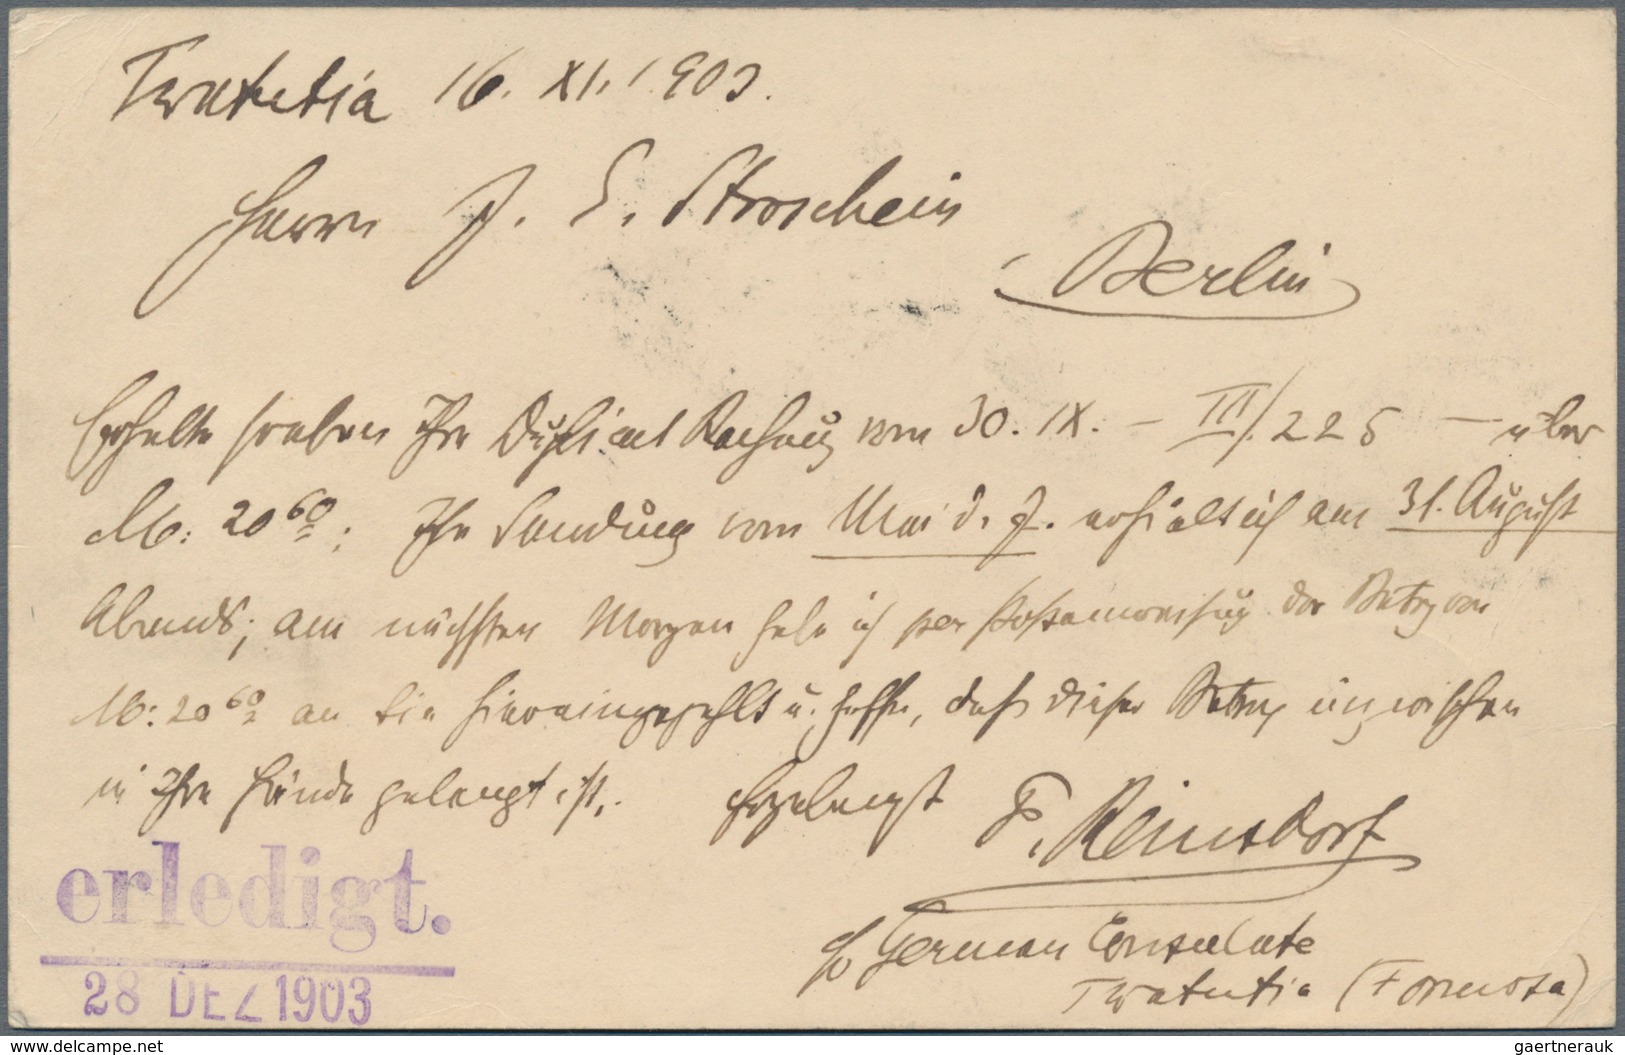 Twatutia 16. XI. 1903.
Herrn J. E. Stroschein
Berlin
Erhalte soeben Ihre Duplicat Rechnung vom 30. IX. – III/.225 – über
M: 20 60; Ihre Sendung vom Mai d. J. erhielt ich am 31. August
Abends; am nächsten Morgen habe ich per Postanweisung den Betrag von
M: 20 60 an Sie hier eingezahlt u. hoffe, daß dieser Betrag inzwischen
in Ihre Hände gelangt ist.
F. Reinsdorf
c/o German Consulate
Twatutia (Formosa)
erledigt.
28 DEZ 1903
www.delcampe.net
gaertnerauk